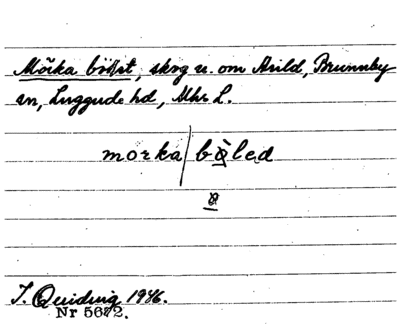 Mörka bölet, skog v. om Arild, Brunnby
sn, Luggude hd, Mhs L.
morka/bòled
I. Quiding 1946.
Nr 5672.